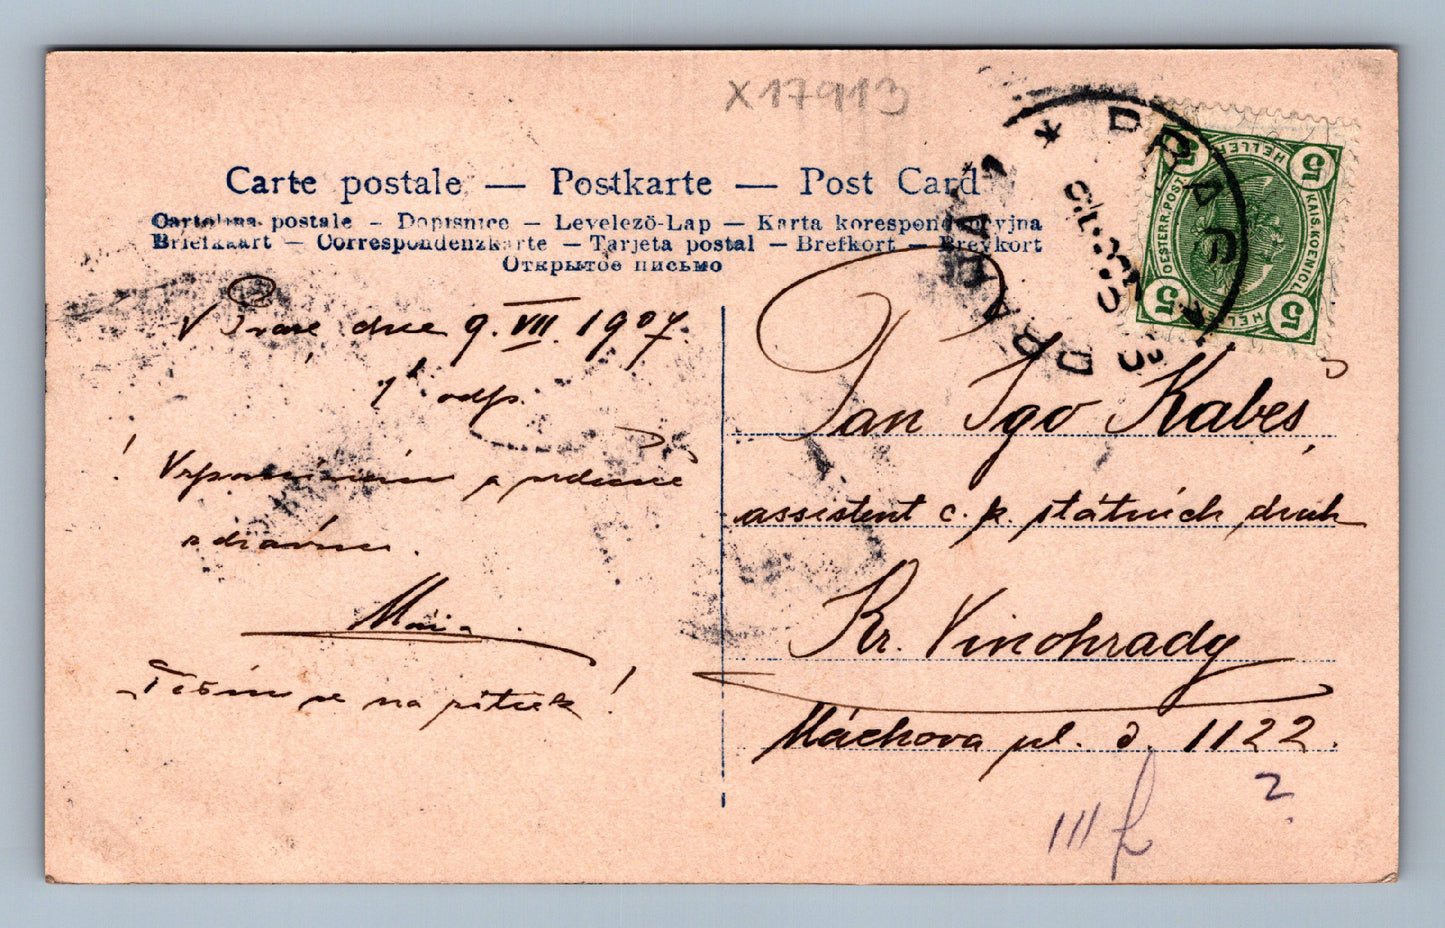 X17913
Carte postale — Postkarte — Post Card
Cartolina postale – Dopisnice – Levelező-Lap – Karta korespondencyjna
Briefkaart – Correspondenzkarte – Tarjeta postal – Brefkort – Brevkort
Открытое письмо
PRAG
PRAHA
5 HELLER 5
KAIS. KOENIGL.
OESTERR. POST
5 HELLER 5
V Praze dne 9. VII. 1907.
odp.
Vzpomínám a srdečně
zdravím.
Těším se na pátek!
Pan Igo Kabeš,
assistent c. k. státních drah
Kr. Vinohrady
Máchova pl. č. 1122.
III
2